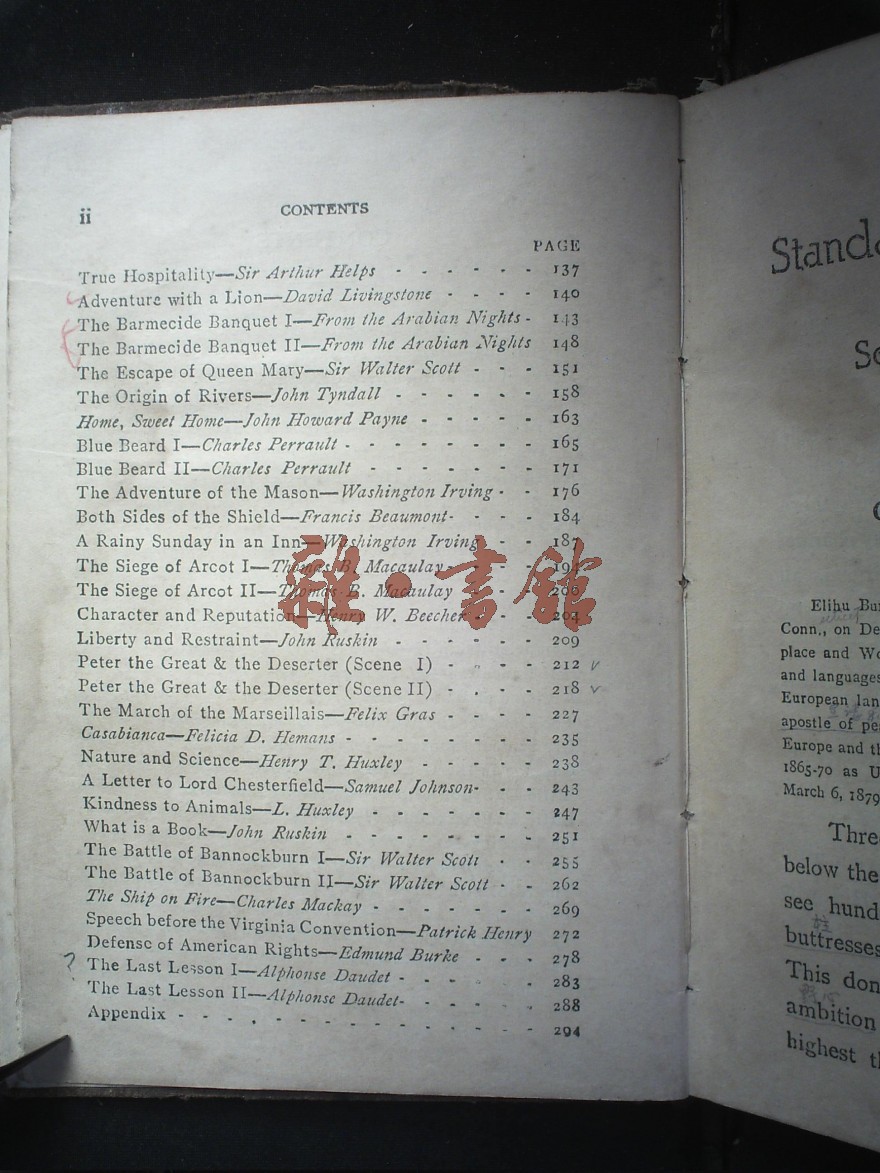 ii
CONTENTS
PAGE
True Hospitality—Sir Arthur Helps - - - - - - 137
Adventure with a Lion—David Livingstone - - - - 140
The Barmecide Banquet I—From the Arabian Nights - 143
The Barmecide Banquet II—From the Arabian Nights 148
The Escape of Queen Mary—Sir Walter Scott - - - 151
The Origin of Rivers—John Tyndall - - - - - - 158
Home, Sweet Home—John Howard Payne - - - - - 163
Blue Beard I—Charles Perrault - - - - - - - - 165
Blue Beard II—Charles Perrault - - - - - - - 171
The Adventure of the Mason—Washington Irving - - 176
Both Sides of the Shield—Francis Beaumont- - - - 184
A Rainy Sunday in an Inn—Washington Irving - - 187
The Siege of Arcot I—Thomas B. Macaulay - - - 194
The Siege of Arcot II—Thomas B. Macaulay - - -
Character and Reputation—Henry W. Beecher - - - 204
Liberty and Restraint—John Ruskin - - - - - - 209
Peter the Great & the Deserter (Scene I) - - - - 212 v
Peter the Great & the Deserter (Scene II) - - - - 218 v
The March of the Marseillais—Felix Gras - - - - 227
Casabianca—Felicia D. Hemans - - - - - - - - 235
Nature and Science—Henry T. Huxley - - - - - 238
A Letter to Lord Chesterfield—Samuel Johnson- - - 243
Kindness to Animals—L. Huxley - - - - - - - 247
What is a Book—John Ruskin - - - - - - - - 251
The Battle of Bannockburn I—Sir Walter Scott - - 255
The Battle of Bannockburn II—Sir Walter Scott - - 262
The Ship on Fire—Charles Mackay - - - - - - - 269
Speech before the Virginia Convention—Patrick Henry 272
Defense of American Rights—Edmund Burke - - - 278
? The Last Lesson I—Alphonse Daudet - - - - - 283
The Last Lesson II—Alphonse Daudet- - - - - 288
Appendix - - - - - - - - - - - - - - 294
雜·書館
Stand
Elihu
Conn., on De
place and
and languages
European lan
apostle of pe
Europe and
1865-70 as U
March 6, 1879
Thre
below the
see hund
柱
buttresses
This don
ambition
highest